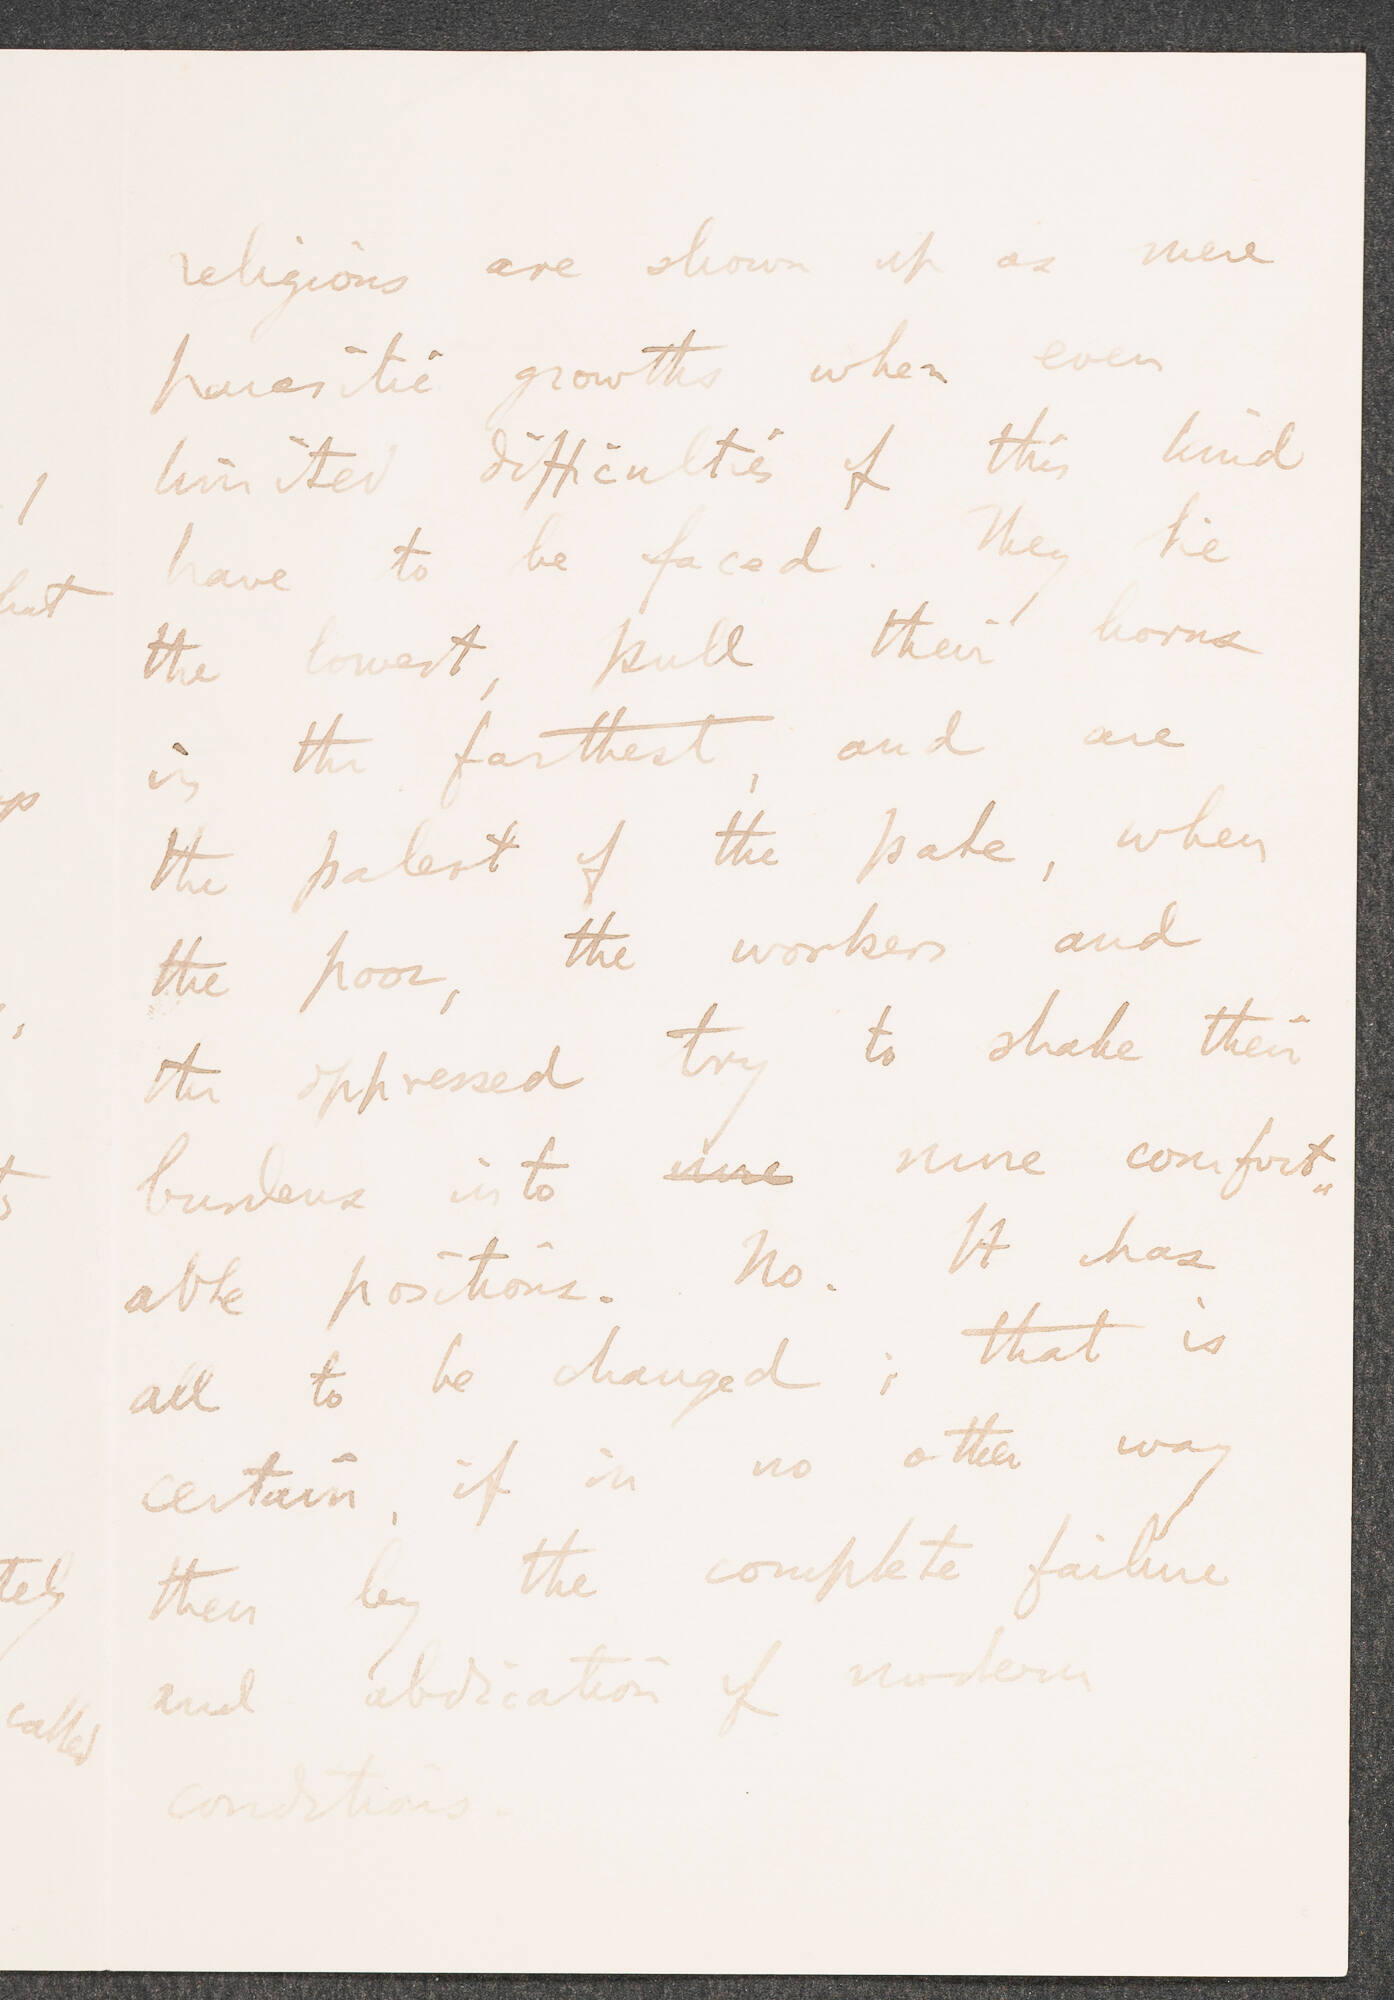 religions are shown up as mere
parasitic growths when even
limited difficulties of this kind
have to be faced. They lie
the lowest, pull their horns
in the farthest, and are
the palest of the pale, when
the poor, the workers and
the oppressed try to shake their
burdens into more comfort„
able positions. No. It has
all to be changed; that is
certain, if in no other way
then by the complete failure
and abdication of modern
conditions.
called